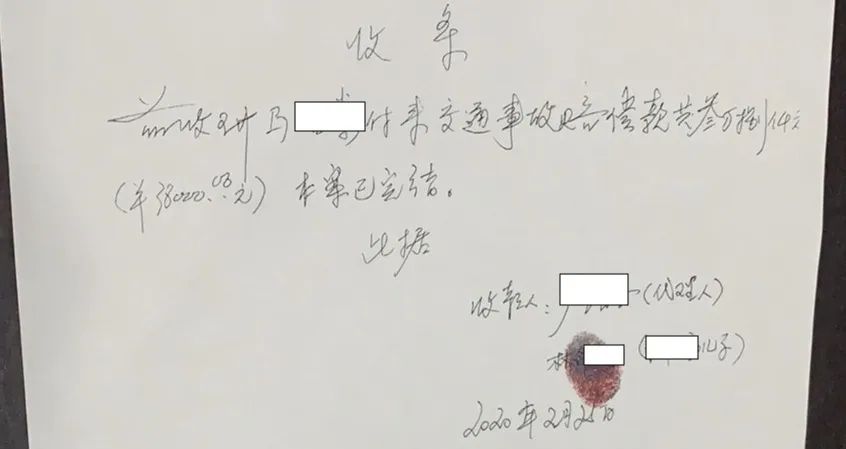 收条
兹收到马付来交通事故赔偿款共叁万捌仟元
(¥38000.00元) 本案已完结。
此据
收款人: (代理人)
林 (儿子)
2020年2月25日